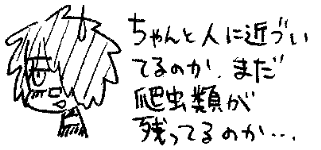 ちゃんと人に近づい
てるのか、まだ
爬虫類が
残ってるのか…